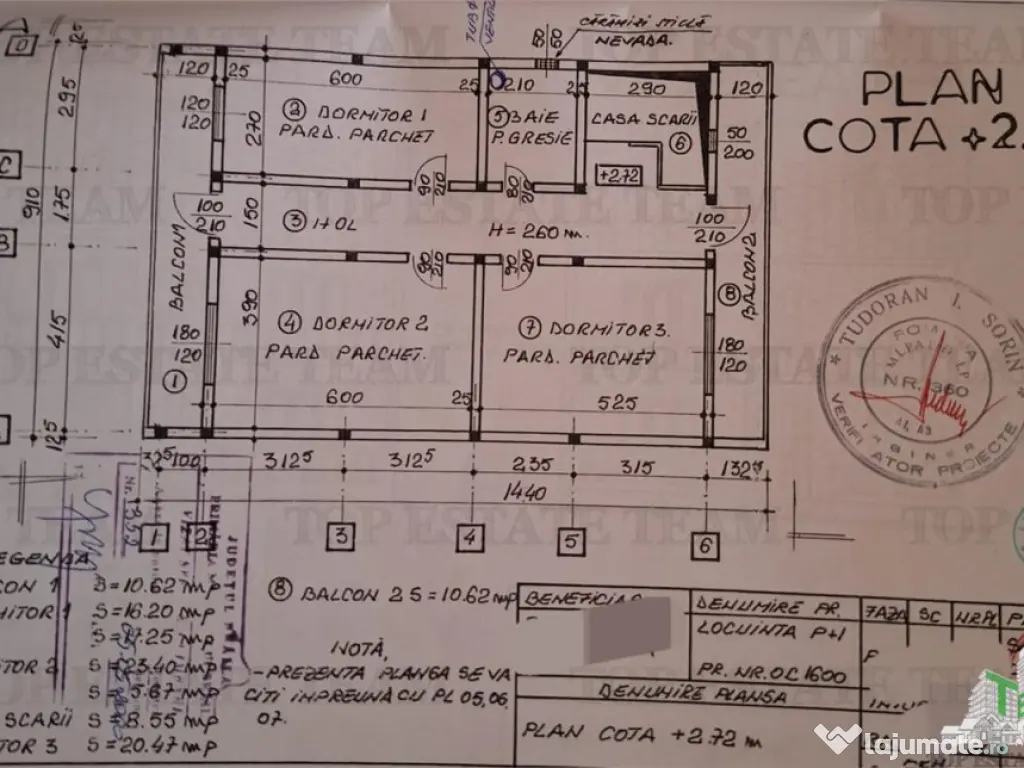 CĂRĂMIZI STICLĂ
NEVADA.
PLAN
COTA +2.
120 25 600 25 210 25 290 120
2 DORMITOR 1
PARD. PARCHET
5 BAIE
P. GRESIE
CASA SCARII
6
+2.72
120
120
270
50
200
90
210
80
210
100
210
150
3 HOL
H = 260 m.
100
210
BALCON 1
BALCON 2
8
90
210
90
210
390
4 DORMITOR 2
PARD PARCHET.
7 DORMITOR 3.
PARD. PARCHET
180
120
180
120
1
600 25 525
295
175
415
125
910
C
B
325 100 3125 3125 235 315 1325
1440
1 2 3 4 5 6
TUDORAN I. SORIN
NR. 360
VERIFICATOR PROIECTE
INGINER
CON 1 S=10.62 mp
MITOR 1 S=16.20 mp
S=17.25 mp
TOR 2 S=23.40 mp
S=5.67 mp
SCARII S=8.55 mp
TOR 3 S=20.47 mp
8 BALCON 2 S=10.62 mp
NOTĂ,
-PREZENTA PLANSA SE VA
CITI IMPREUNA CU PL 05,06,
07.
BENEFICIAR
DENUMIRE PR.
FAZA
SC
NR.PL
LOCUINTA P+1
PR. NR. OC 1600
DENUMIRE PLANSA
PLAN COTA +2.72 m
TOP ESTATE TEAM
lajumate.ro